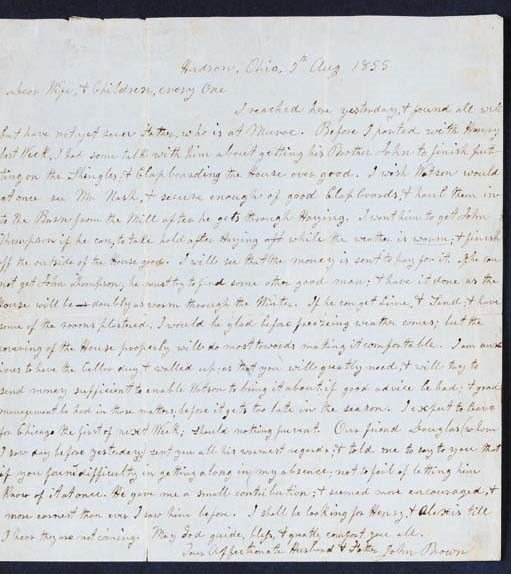 Hudson, Ohio, 5th Aug 1855
Dear Wife, & Children, every One
I reached here yesterday, & found all well
but have not yet seen Father, who is at Munroe. Before I parted with Henry
last Week, I had some talk with him about getting his Brother John to finish put-
ting on the Shingles, & Clapboarding the House over good. I wish Watson would
at once see Mr Nash, & secure enough of good Clapboards, & haul them in-
to the Barn from the Mill after he gets through Haying. I want him to get John
Thompson if he can, to take hold after Haying off while the weather is warm, & finish
off the outside of the House good. I will see that the money is sent to pay for it. If he can
not get John Thompson, he must try to find some other good man; & have it done as the
House will be doubly as warm through the Winter. If he can get Lime, & Sand, & have
some of the rooms plastered, I would be glad before freezing weather comes; but the
covering of the House properly will do most towards making it comfortable. I am anx
ious to have the Cellar dug & walled up; as that you will greatly need; & will try to
send money sufficient to enable Watson to bring it about if good advice be had; & good
management be had in those matters, before it gets too late in the season. I expect to leave
for Chicago the first of next Week; should nothing prevent. Our friend Douglas (whom
I saw day before yesterday) sent you all his warmest regards; & told me to say to you that
if you found difficulty in getting along in my absence; not to fail of letting him
know of it at once. He gave me a small contribution; & seemed more encouraged, &
more earnest than ever I saw him before. I shall be looking for Henry, & Alexis till
I hear they are not coming. May God guide, bless, & greatly comfort you all.
Your Affectionate Husband & Father John Brown